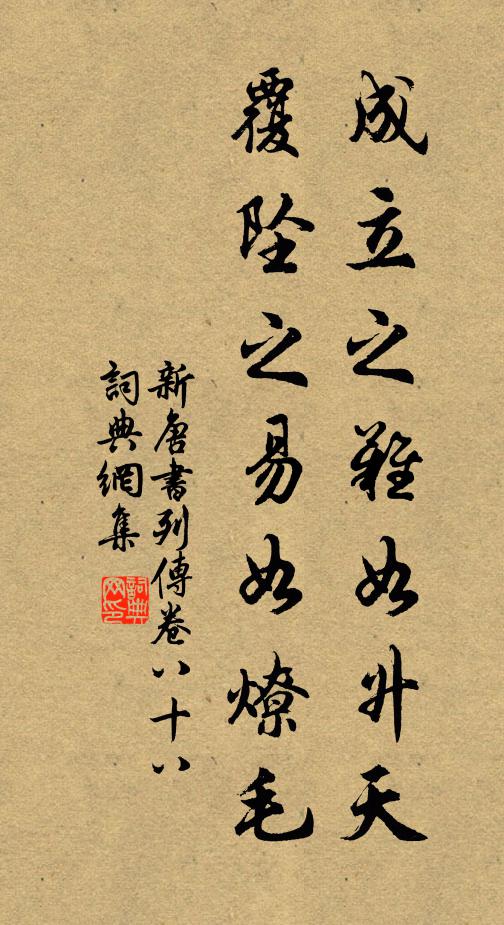 成立之難如升天
覆墜之易如燎毛
新唐書列傳卷八十八
詞典網集
詞典網印